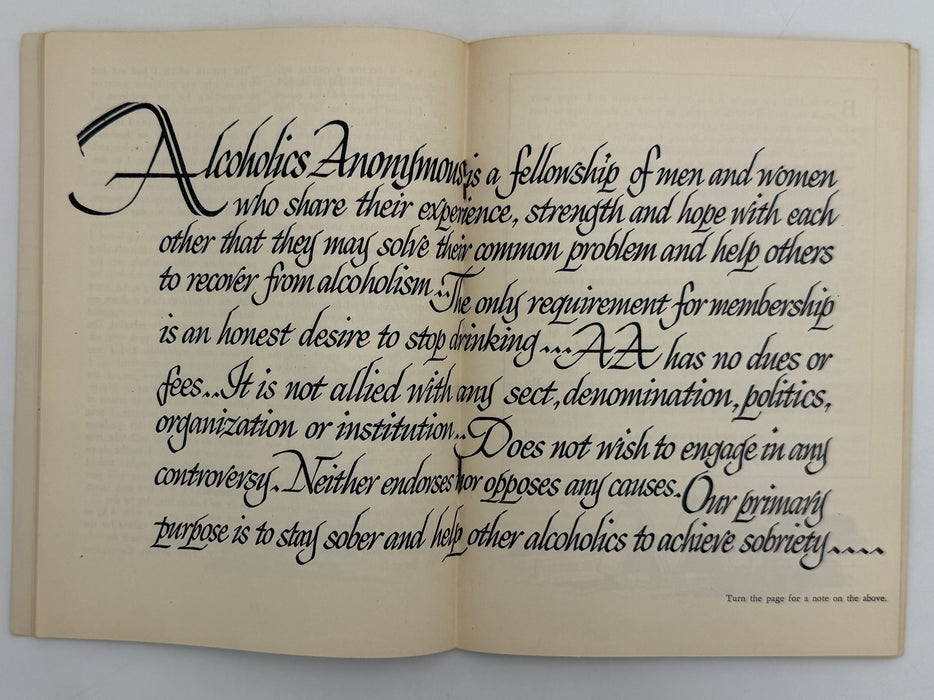 Alcoholics Anonymous is a fellowship of men and women
who share their experience, strength and hope with each
other that they may solve their common problem and help others
to recover from alcoholism...The only requirement for membership
is an honest desire to stop drinking...AA has no dues or
fees...It is not allied with any sect, denomination, politics,
organization or institution...Does not wish to engage in any
controversy. Neither endorses nor opposes any causes. Our primary
purpose is to stay sober and help other alcoholics to achieve sobriety....
Turn the page for a note on the above.